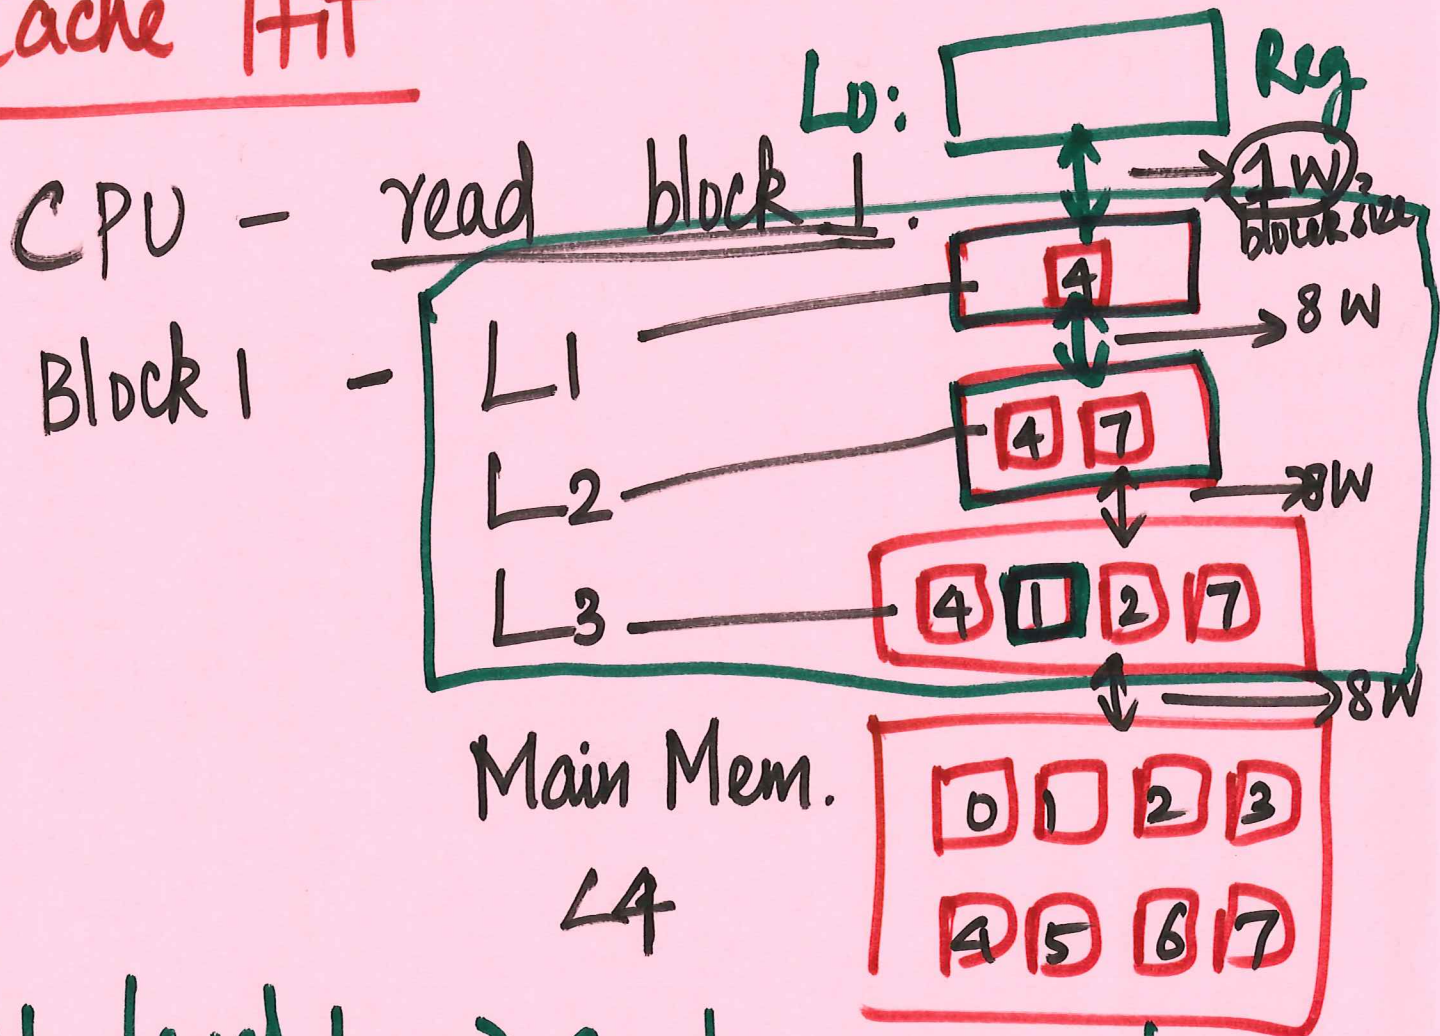 ache Hit
L0: Reg
CPU - read block 1.
1W,
block size
4
8W
Block 1 - L1
4 7
L2
8W
L3
4 1 2 7
8W
Main Mem.
0 1 2 3
L4
4 5 6 7